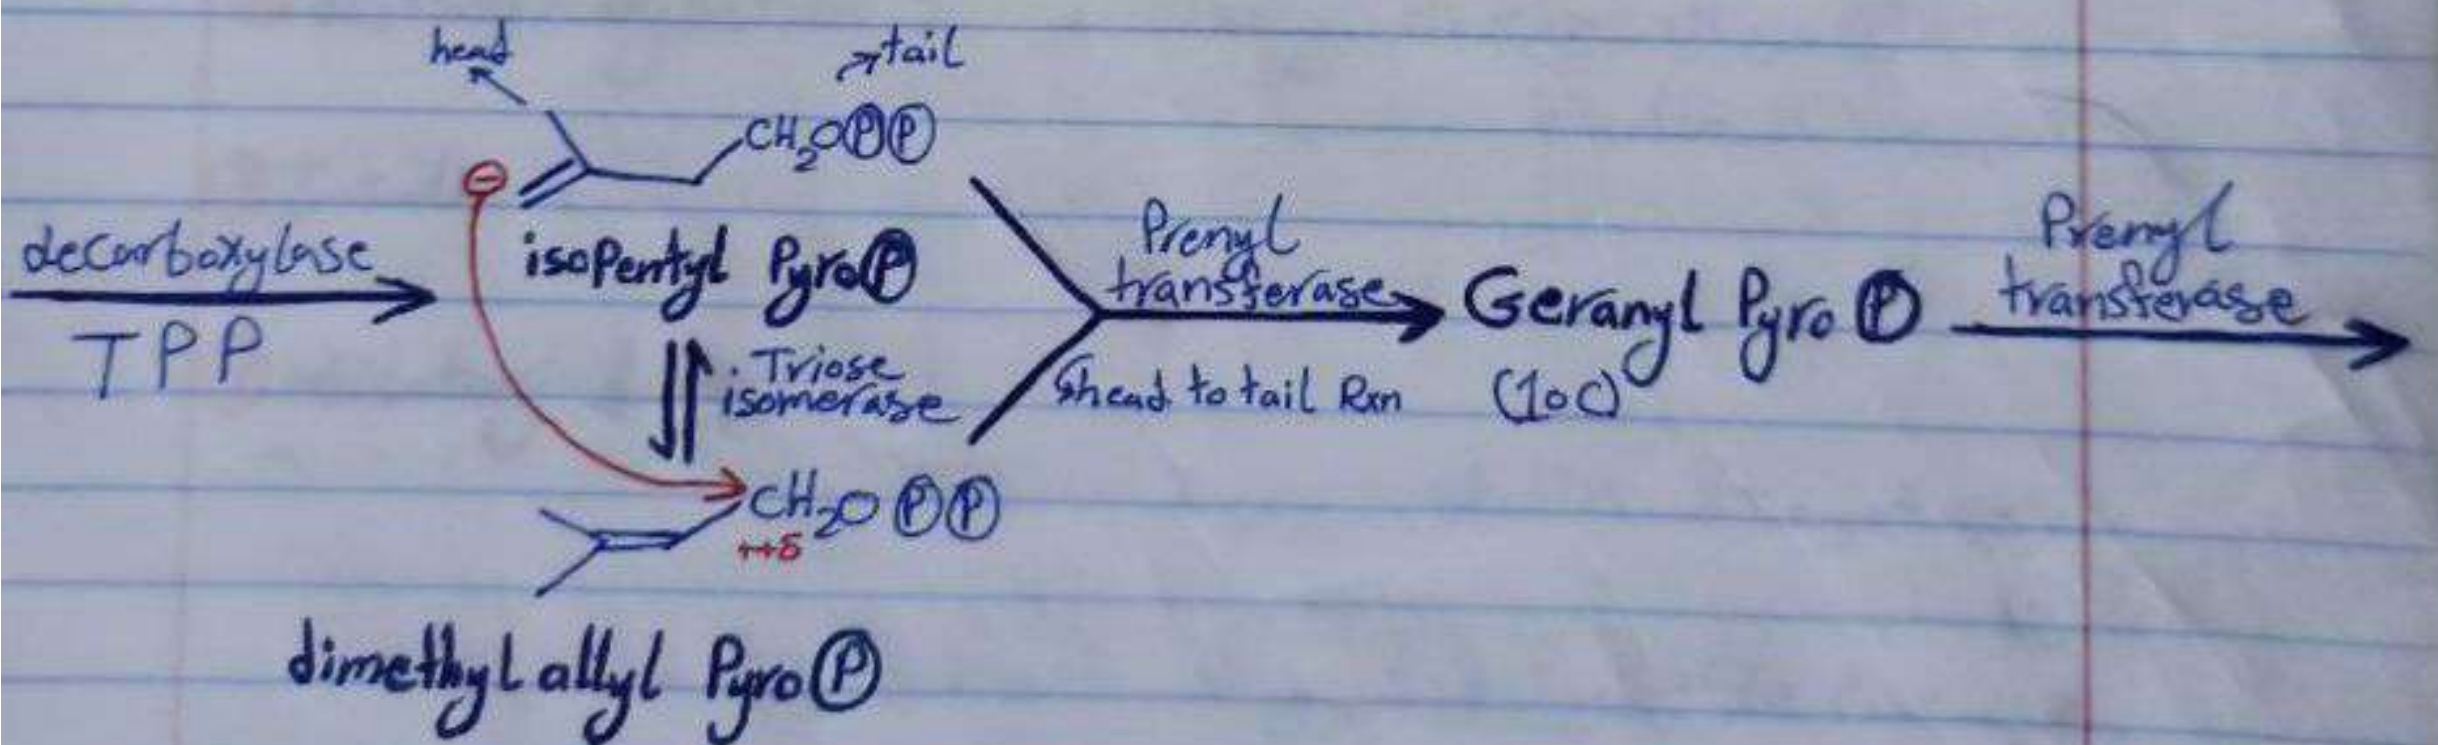 head
tail
CH₂OⓅⓅ
⊖
decarboxylase
TPP
isopentyl PyroⓅ
Triose
isomerase
CH₂OⓅⓅ
++δ
dimethyl allyl PyroⓅ
Prenyl
transferase
head to tail Rxn
Geranyl Pyro Ⓟ
(10C)
Prenyl
transferase